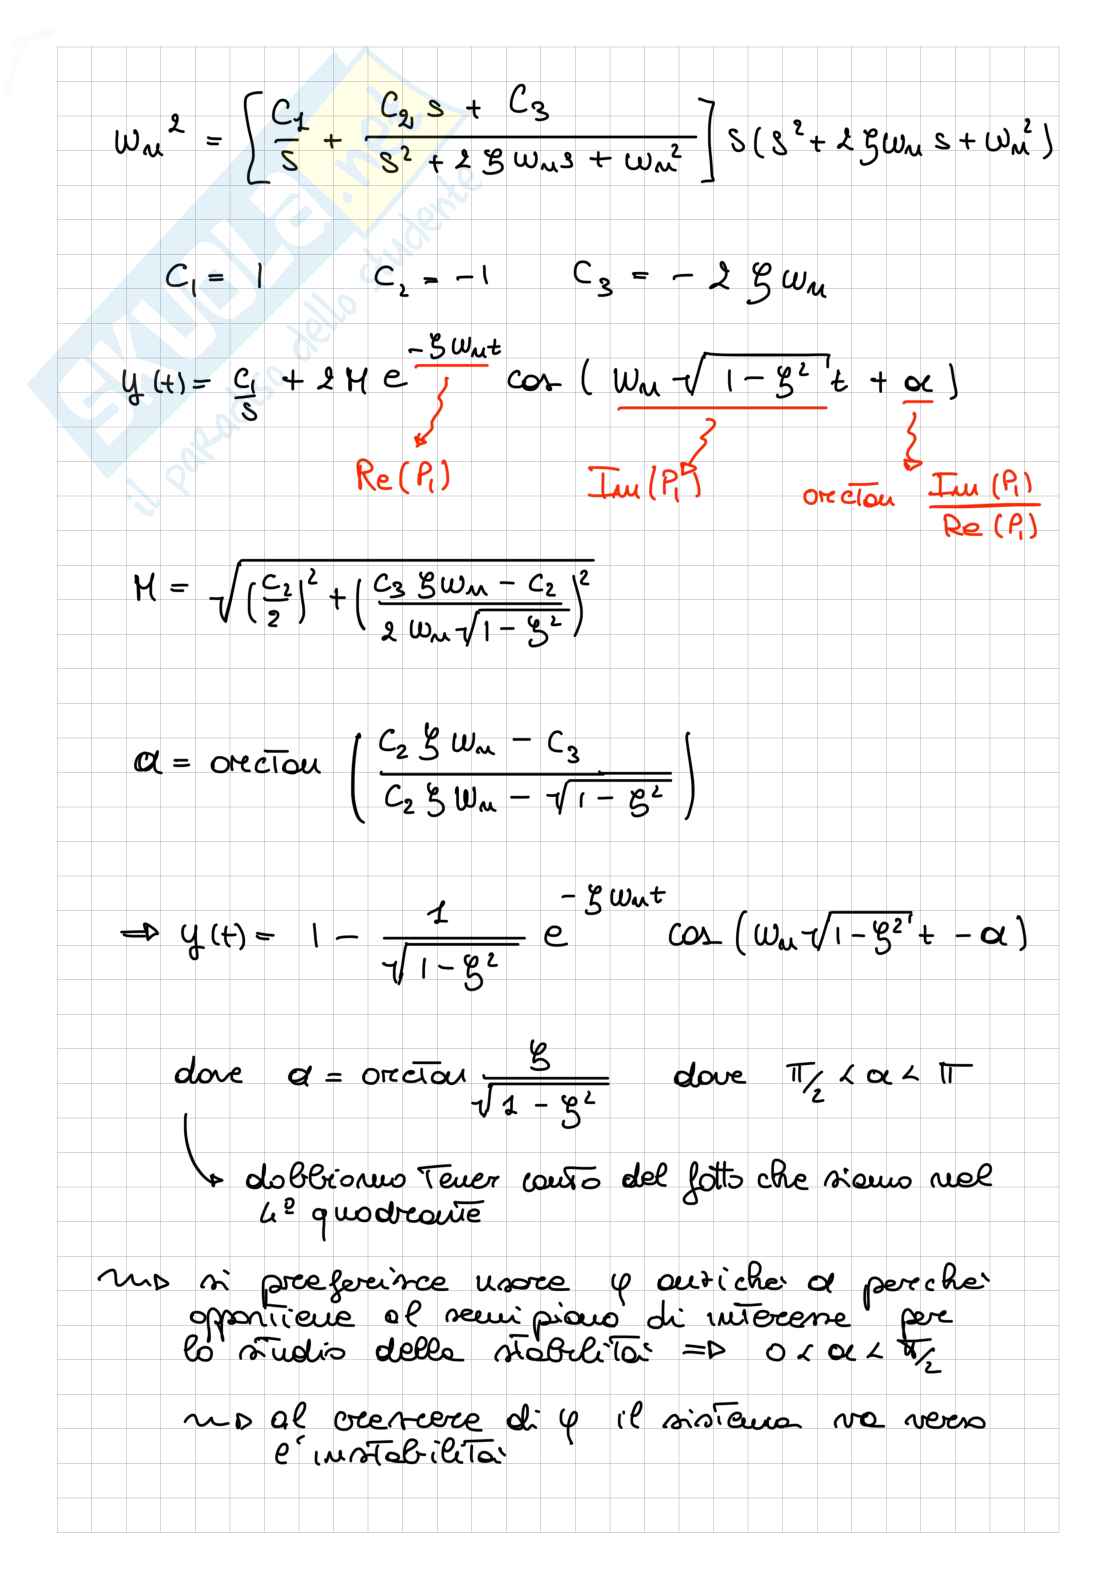 SKUOLA.net
il paradiso dello studente
ωn² = [ C1/s + (C2 s + C3)/(s² + 2ξωn s + ωn²) ] s(s² + 2ξωn s + ωn²)
C1 = 1 C2 = -1 C3 = -2ξωn
y(t) = C1/s + 2M e^(-ξωn t) cos(ωn√(1-ξ²) t + α)
Re(P1) Im(P1) arctan Im(P1)/Re(P1)
M = √((C2/2)² + ((C3 ξωn - C2)/(2ωn√(1-ξ²)))²)
α = arctan ((C2 ξωn - C3)/(C2 ξωn - √(1-ξ²)))
⇒ y(t) = 1 - 1/√(1-ξ²) e^(-ξωn t) cos(ωn√(1-ξ²) t - α)
dove α = arctan ξ/√(1-ξ²) dove π/2 < α < π
dobbiamo tener conto del fatto che siamo nel
4º quadrante
si preferisce usare φ anziché α perché
appartiene al semipiano di interesse per
lo studio della stabilità ⇒ 0 < α < π/2
al crescere di φ il sistema va verso
l'instabilità